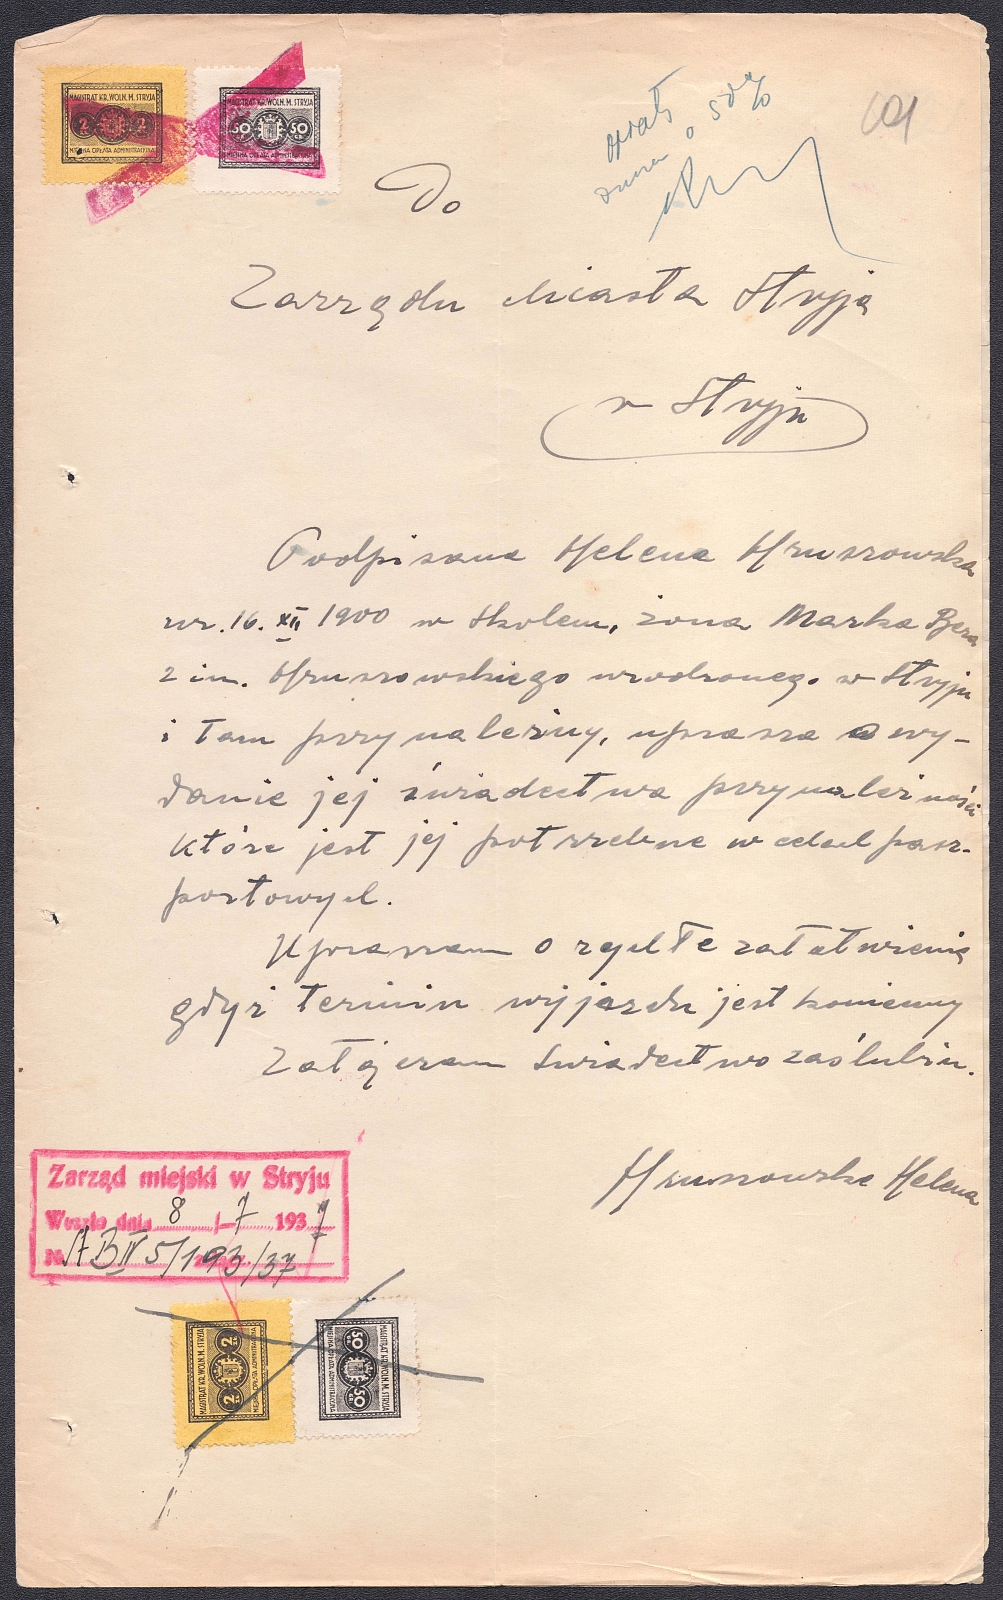 MAGISTRAT KR. WOLN. M. STRYJA
2 2
MIEJSKA OPŁATA ADMINISTRACYJNA
MAGISTRAT KR. WOLN. M. STRYJA
50 50
MIEJSKA OPŁATA ADMINISTRACYJNA
601
Do
Zarządu Miasta Stryja
w Stryju
Podpisana Helena Hruszowska
ur. 16. XII 1900 w Skolem, żona Marka Bera
2 im. Hruszowskiego urodzoneg. w Stryju
i tam przynależny, uprasza o wy-
danie jej świadectwa przynależności
które jest jej potrzebne w celach pasz-
portowych.
Upraszam o rychłe załatwienie
gdyż termin wyjazdu jest konieczny
Załączam świadectwo zaślubin.
Hruszowska Helena
Zarząd miejski w Stryju
Weszło dnia 8/7 1937
N AB IV 5/193/37
MAGISTRAT KR. WOLN. M. STRYJA
2 2
MIEJSKA OPŁATA ADMINISTRACYJNA
MAGISTRAT KR. WOLN. M. STRYJA
50 50
MIEJSKA OPŁATA ADMINISTRACYJNA